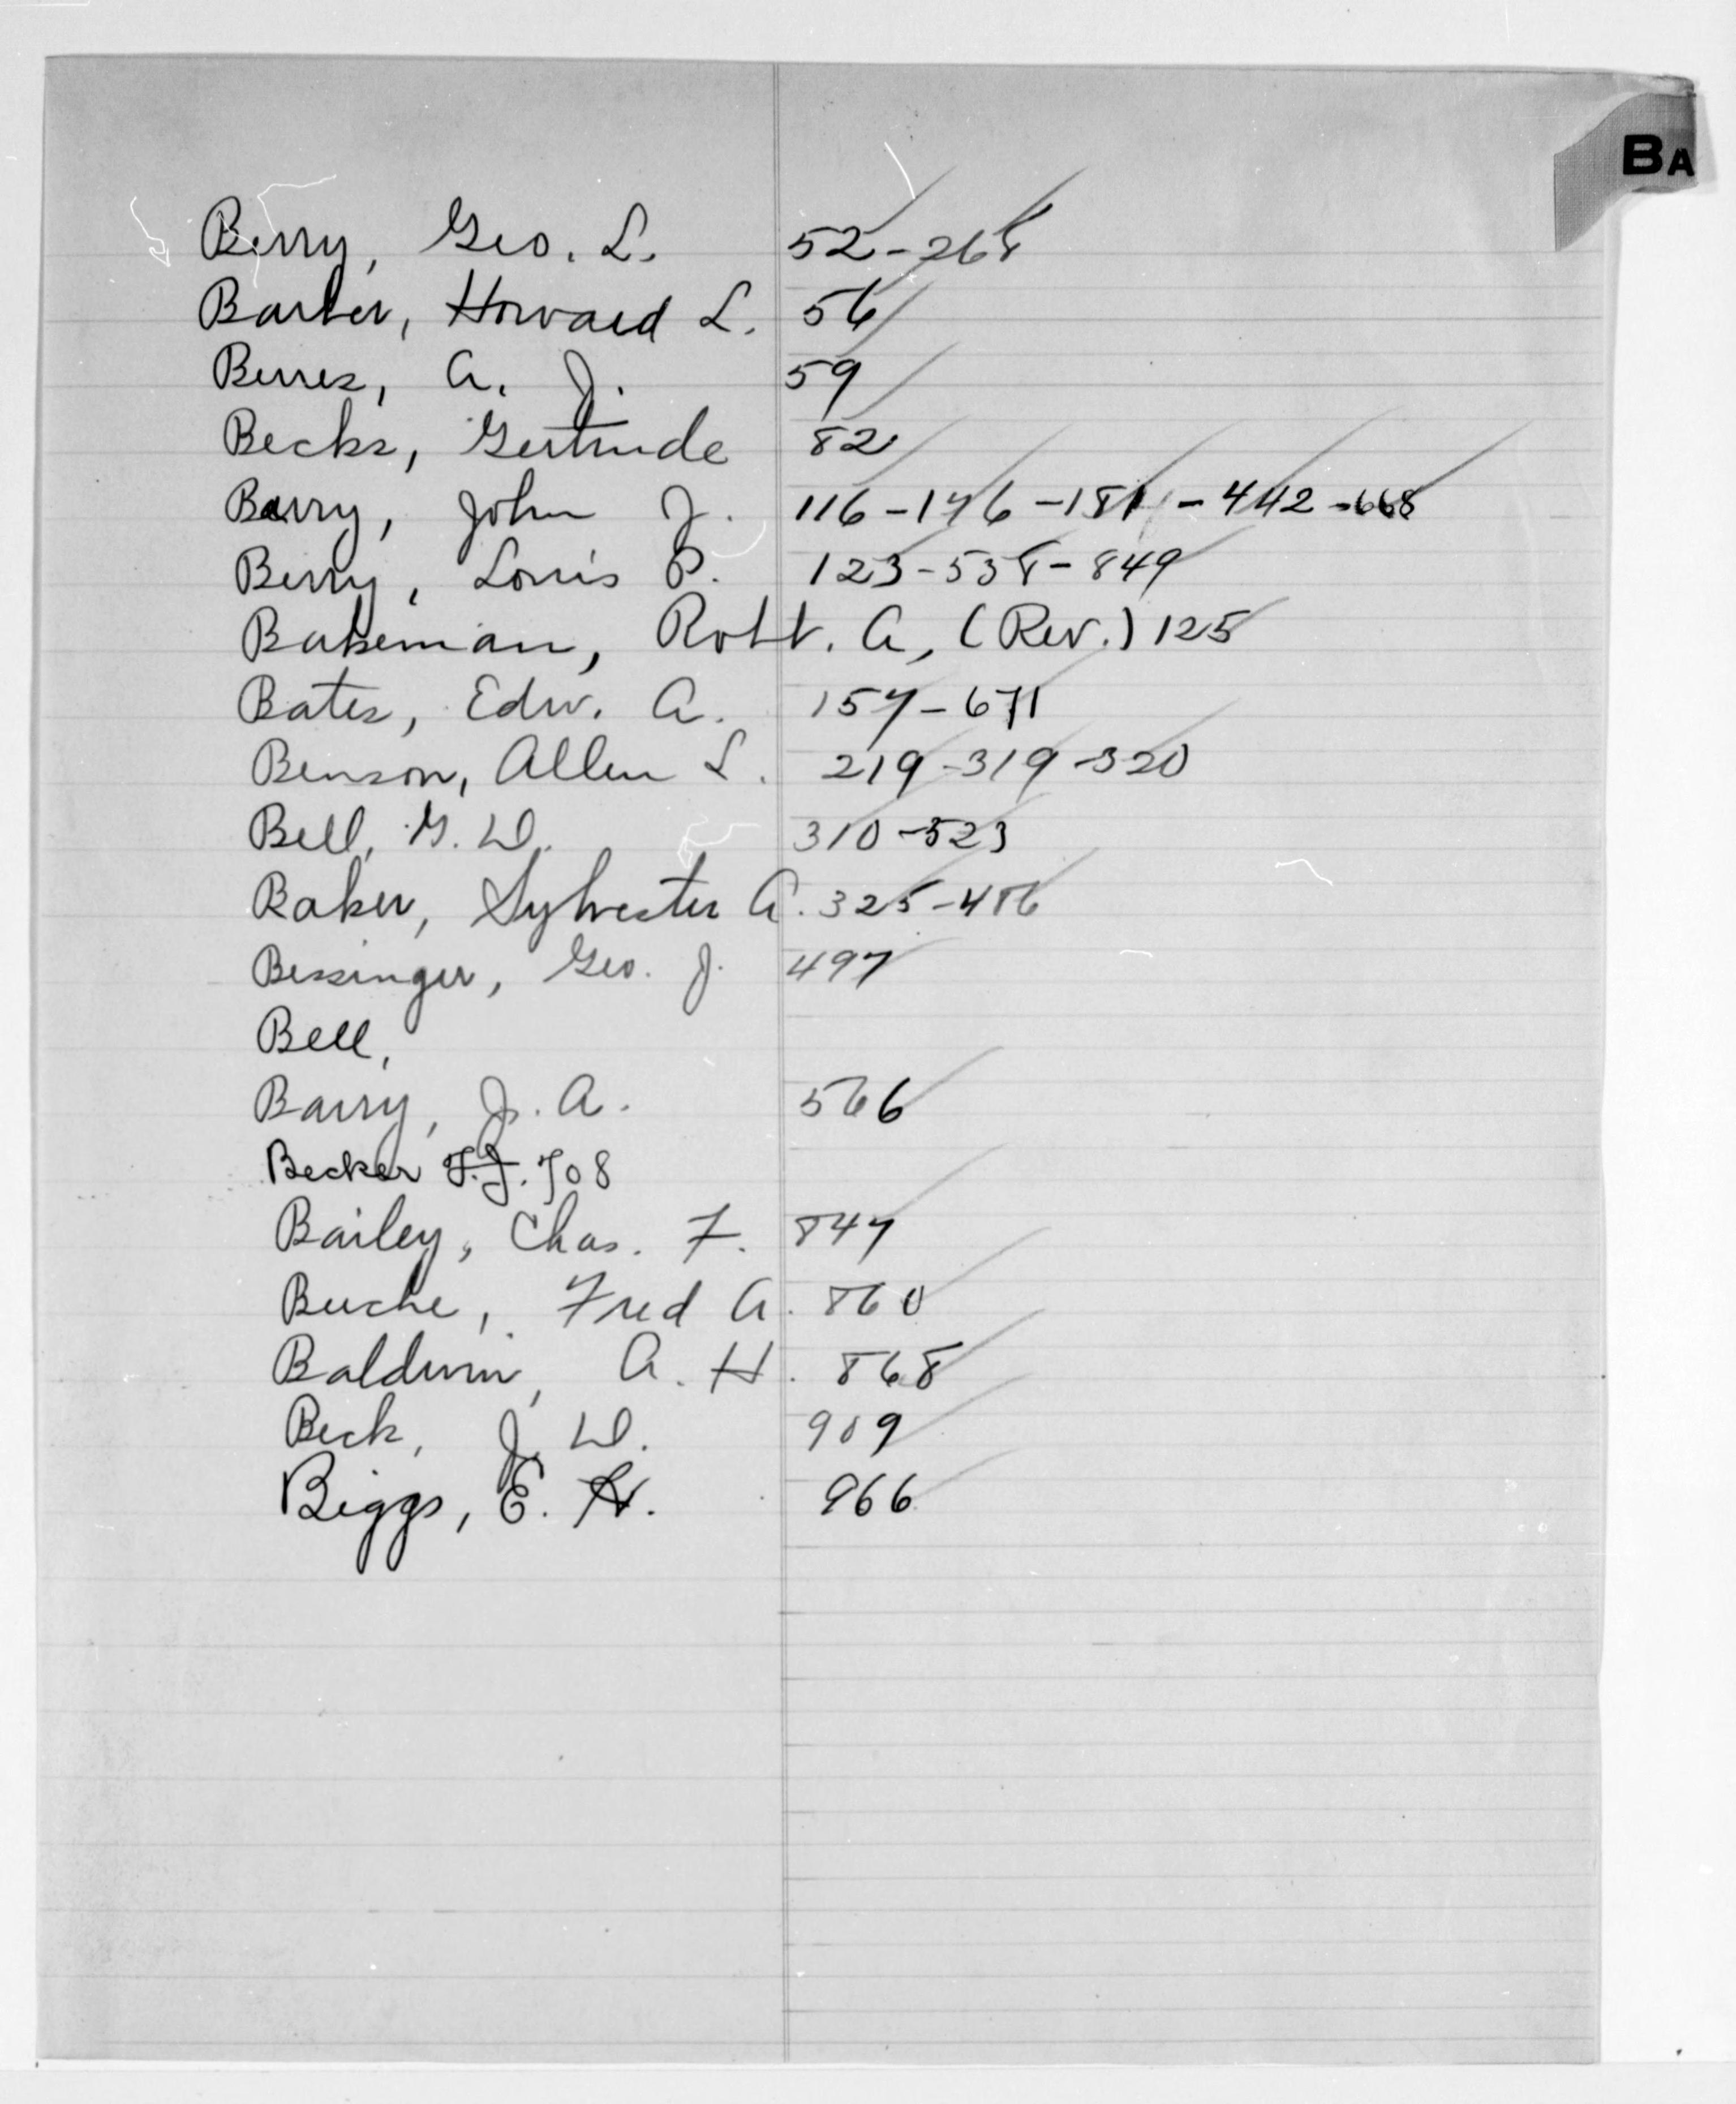 BA
Berry, Geo. L. 52-268
Barber, Howard L. 56
Berres, A. J. 59
Becks, Gertrude 82
Barry, John J. 116-176-181-442-668
Berry, Louis P. 123-538-849
Bakeman, Robt. A, (Rev.) 125
Bates, Edw. A. 157-671
Benson, Allen L. 219-319-320
Bell, G. W. 310-523
Baker, Sylvester A. 325-486
Bessinger, Geo. J. 497
Bell,
Barry, J. A. 566
Becker F.J. 708
Bailey, Chas. F. 847
Buche, Fred A. 860
Baldwin, A. H. 868
Beck, J. W. 909
Biggs, E. H. 966